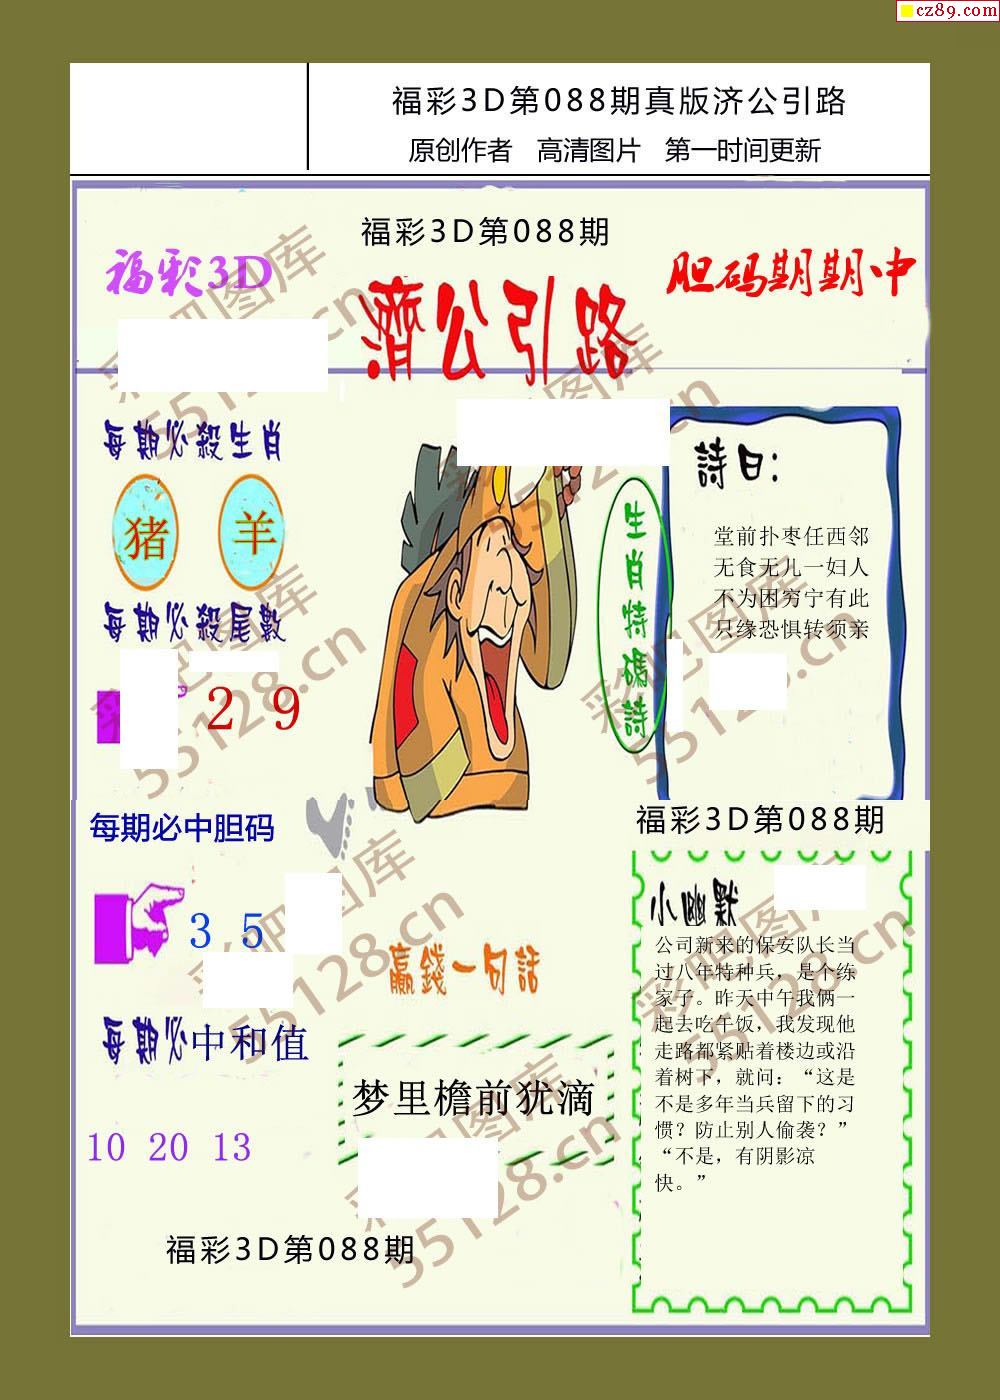 cz89.com
福彩3D第088期真版济公引路
原创作者 高清图片 第一时间更新
福彩3D第088期
福彩3D
濟公引路
胆码期期中
每期必殺生肖
猪 羊
每期必殺尾數
2 9
生肖特碼詩
詩曰:
堂前扑枣任西邻
无食无儿一妇人
不为困穷宁有此
只缘恐惧转须亲
每期必中胆码
3 5
每期必中和值
10 20 13
贏錢一句話
梦里檐前犹滴
福彩3D第088期
福彩3D第088期
小幽默
公司新来的保安队长当
过八年特种兵，是个练
家子。昨天中午我俩一
起去吃午饭，我发现他
走路都紧贴着楼边或沿
着树下，就问：“这是
不是多年当兵留下的习
惯？防止别人偷袭？”
“不是，有阴影凉
快。”
彩吧图库
55128.cn